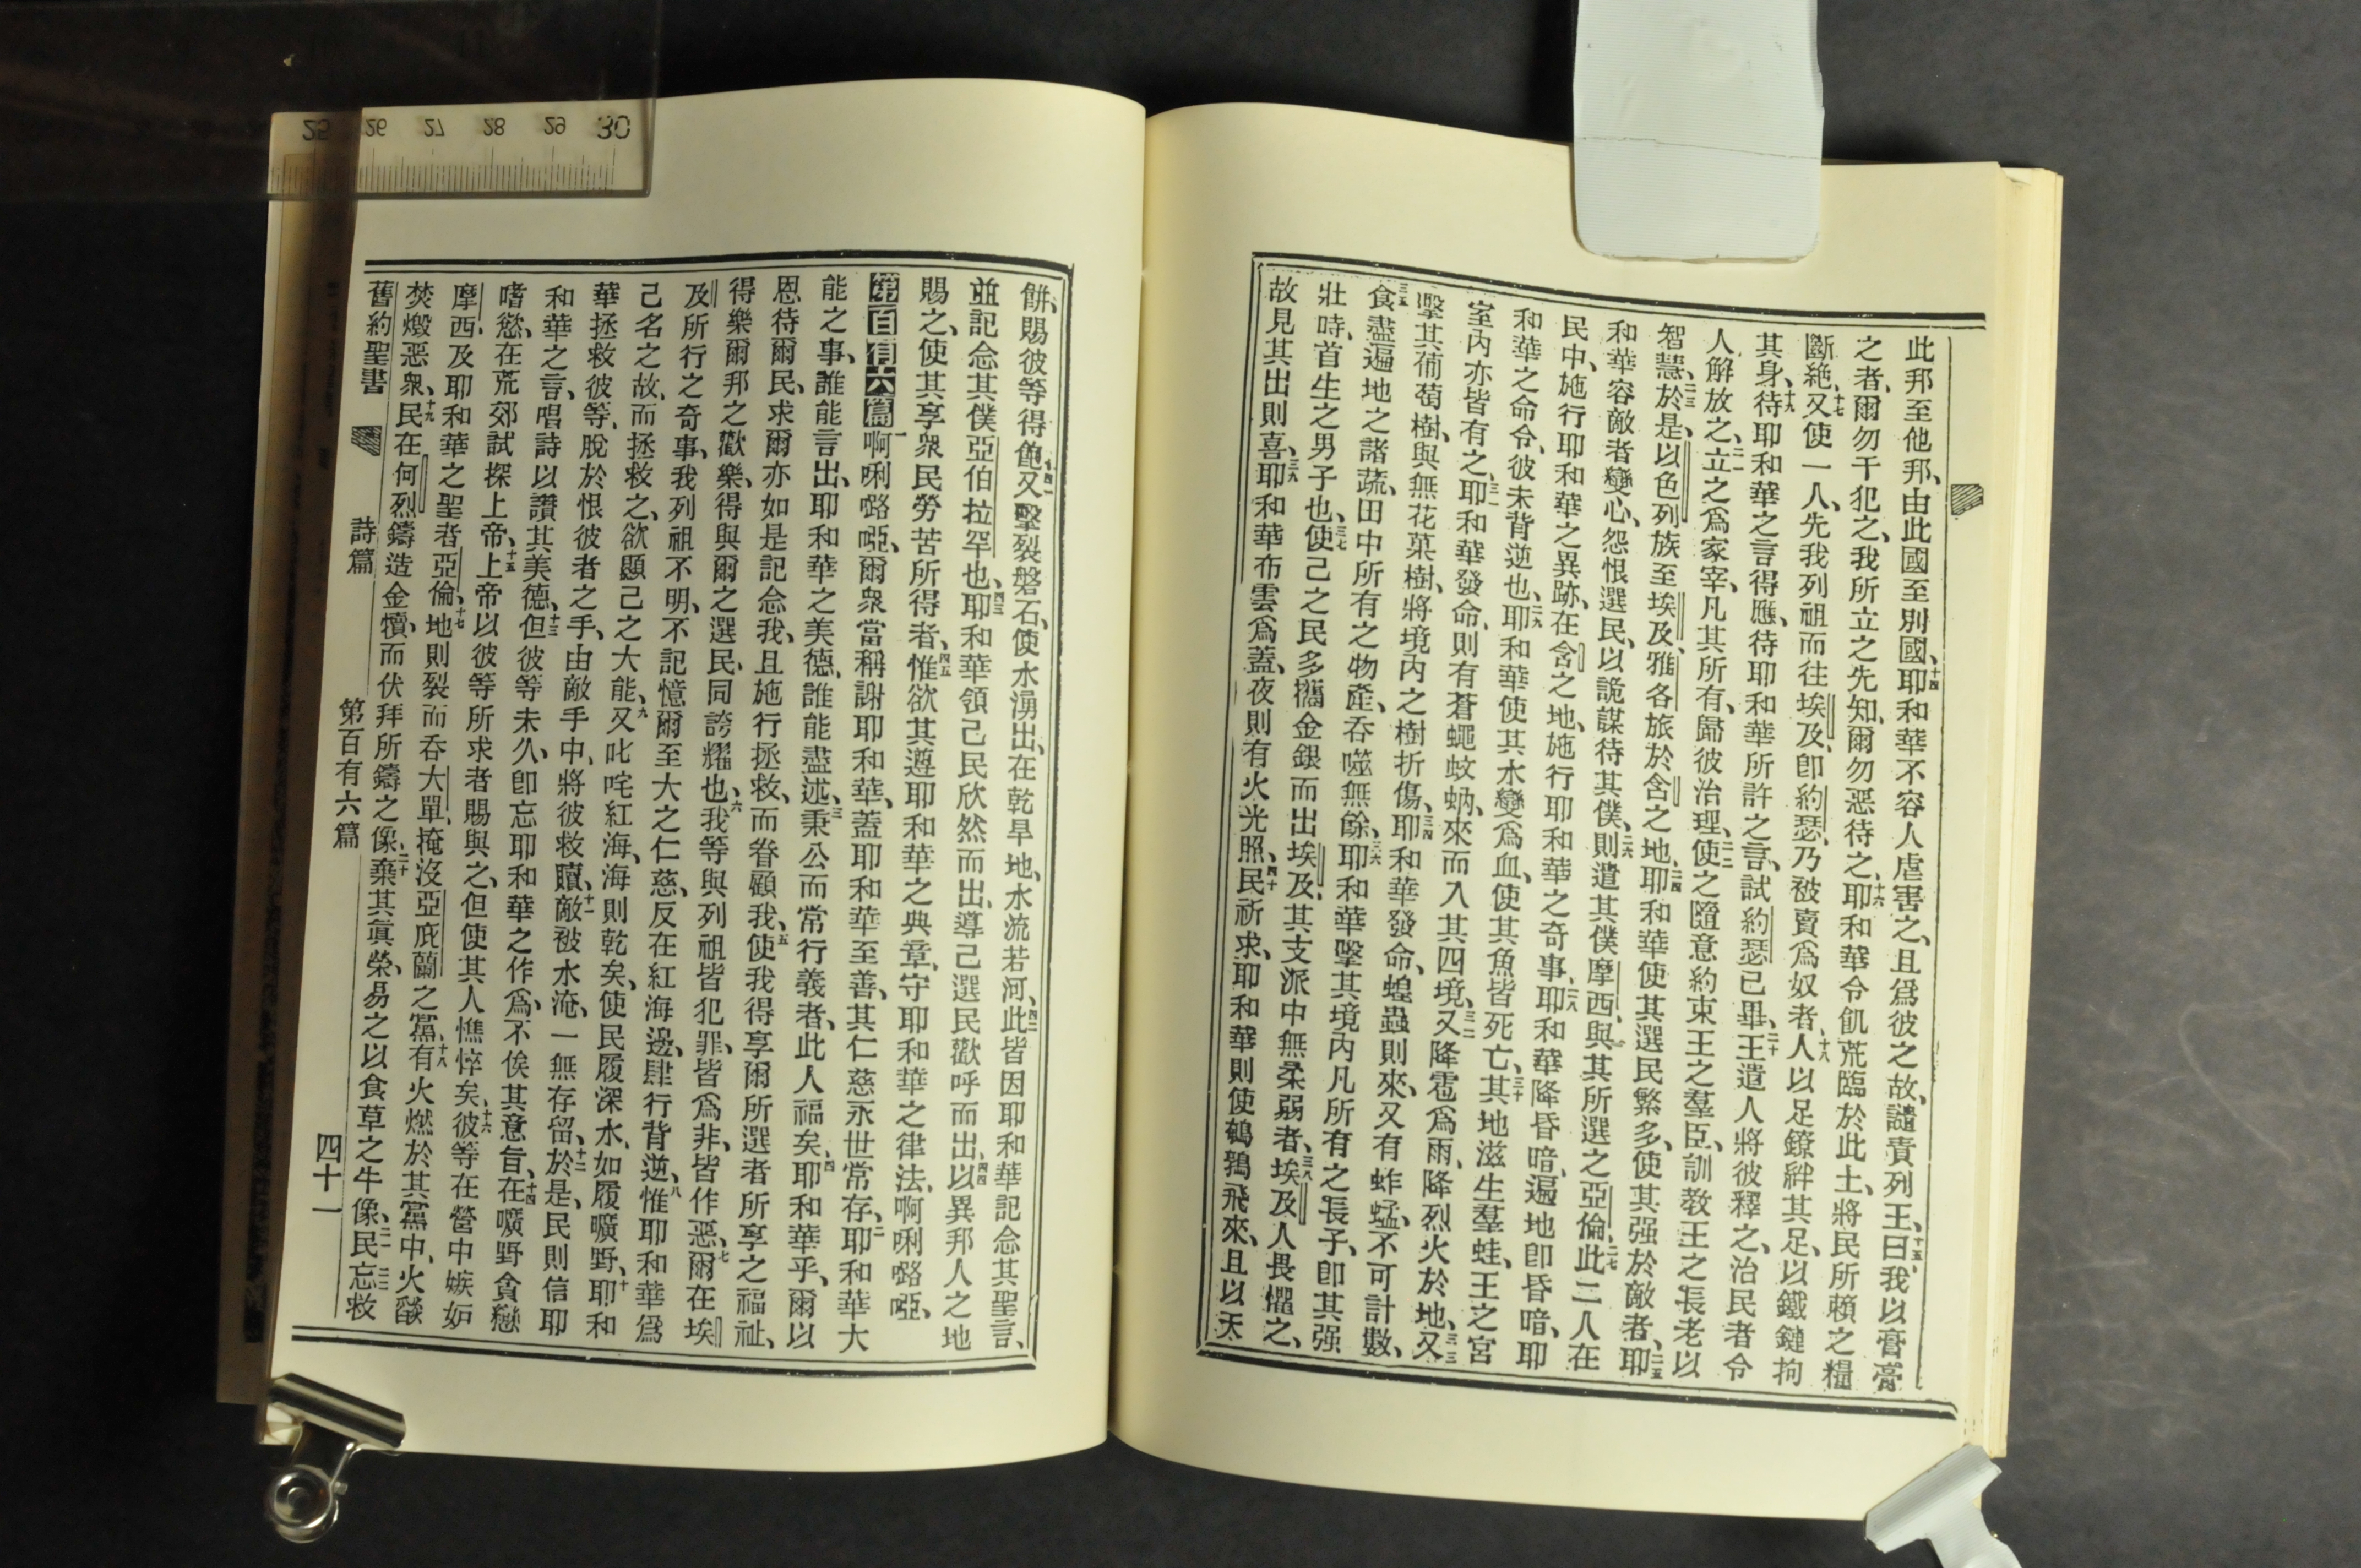 此邦至他邦、由此國至別國、十四耶和華不容人虐害之、且爲彼之故、譴責列王、十五曰、我以膏膏
之者、爾勿干犯之、我所立之先知、爾勿惡待之、十六耶和華令飢荒臨於此土、將民所賴之糧
斷絕、十七又使一人、先我列祖而往埃及、卽約瑟、乃被賣爲奴者、十八人以足鐐絆其足、以鐵鏈拘
其身、十九待耶和華之言得應、待耶和華所許之言、試約瑟已畢、二十王遣人將彼釋之、治民者令
人解放之、二一立之爲家宰、凡其所有、歸彼治理、二二使之隨意約束王之羣臣、訓敎王之長老以
智慧、二三於是、以色列族至埃及、雅各旅於含之地、二四耶和華使其選民繁多、使其强於敵者、二五耶
和華容敵者變心、怨恨選民、以詭謀待其僕、二六則遣其僕摩西、與其所選之亞倫、二七此二人在
民中、施行耶和華之異跡、在含之地、施行耶和華之奇事、二八耶和華降昏暗、遍地卽昏暗、耶
和華之命令、彼未背逆也、二九耶和華使其水變爲血、使其魚皆死亡、三十其地滋生羣蛙、王之宮
室內亦皆有之、三一耶和華發命、則有蒼蠅蚊蚋、來而入其四境、三二又降雹爲雨、降烈火於地、三三又
擊其葡萄樹、與無花菓樹、將境內之樹折傷、三四耶和華發命、蝗蟲則來、又有蚱蜢、不可計數、
三五食盡遍地之諸蔬、田中所有之物產、吞噬無餘、三六耶和華擊其境內凡所有之長子、卽其强
壯時、首生之男子也、三七使己之民多攜金銀而出埃及、其支派中無柔弱者、三八埃及人畏懼之、
故見其出則喜、三九耶和華布雲爲蓋、夜則有火光照、四十民祈求、耶和華則使鵪鶉飛來、且以天
餠、賜彼等得飽、四一又擊裂磐石、使水湧出、在乾旱地、水流若河、四二此皆因耶和華記念其聖言、
並記念其僕亞伯拉罕也、四三耶和華領己民欣然而出、導己選民歡呼而出、四四以異邦人之地
賜之、使其享衆民勞苦所得者、四五惟欲其遵耶和華之典章、守耶和華之律法、啊唎嚕啞、
第百有六篇 一啊唎嚕啞、爾衆當稱謝耶和華、蓋耶和華至善、其仁慈永世常存、二耶和華大
能之事、誰能言出、耶和華之美德、誰能盡述、三秉公而常行義者、此人福矣、四耶和華乎、爾以
恩待爾民、求爾亦如是記念我、且施行拯救、而眷顧我、五使我得享爾所選者所享之福祉、
得樂爾邦之歡樂、得與爾之選民、同誇耀也、六我等與列祖皆犯罪、皆爲非、皆作惡、七爾在埃
及所行之奇事、我列祖不明、不記憶爾至大之仁慈、反在紅海邊、肆行背逆、八惟耶和華爲
己名之故、而拯救之、欲顯己之大能、九又叱咤紅海、海則乾矣、使民履深水、如履曠野、十耶和
華拯救彼等、脫於恨彼者之手、由敵手中、將彼救贖、十一敵被水淹、一無存留、十二於是、民則信耶
和華之言、唱詩以讚其美德、十三但彼等未久、卽忘耶和華之作爲、不俟其意旨、十四在曠野貪戀
嗜慾、在荒郊試探上帝、十五上帝以彼等所求者賜與之、但使其人憔悴矣、十六彼等在營中嫉妒
摩西、及耶和華之聖者亞倫、十七地則裂而吞大單、掩沒亞庇蘭之黨、十八有火燃於其黨中、火燄
焚燬惡衆、十九民在何烈鑄造金犢、而伏拜所鑄之像、二十棄其眞榮、易之以食草之牛像、二一民忘救
舊約聖書 詩篇 第百有六篇 四十一
25 26 27 28 29 30